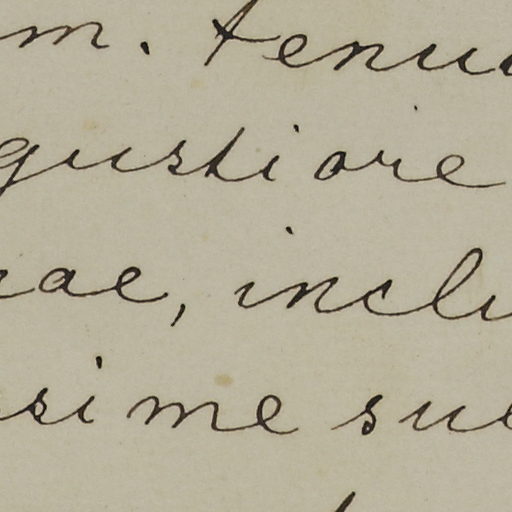 m. tenu
gustiore
ae, inclu
sime sue